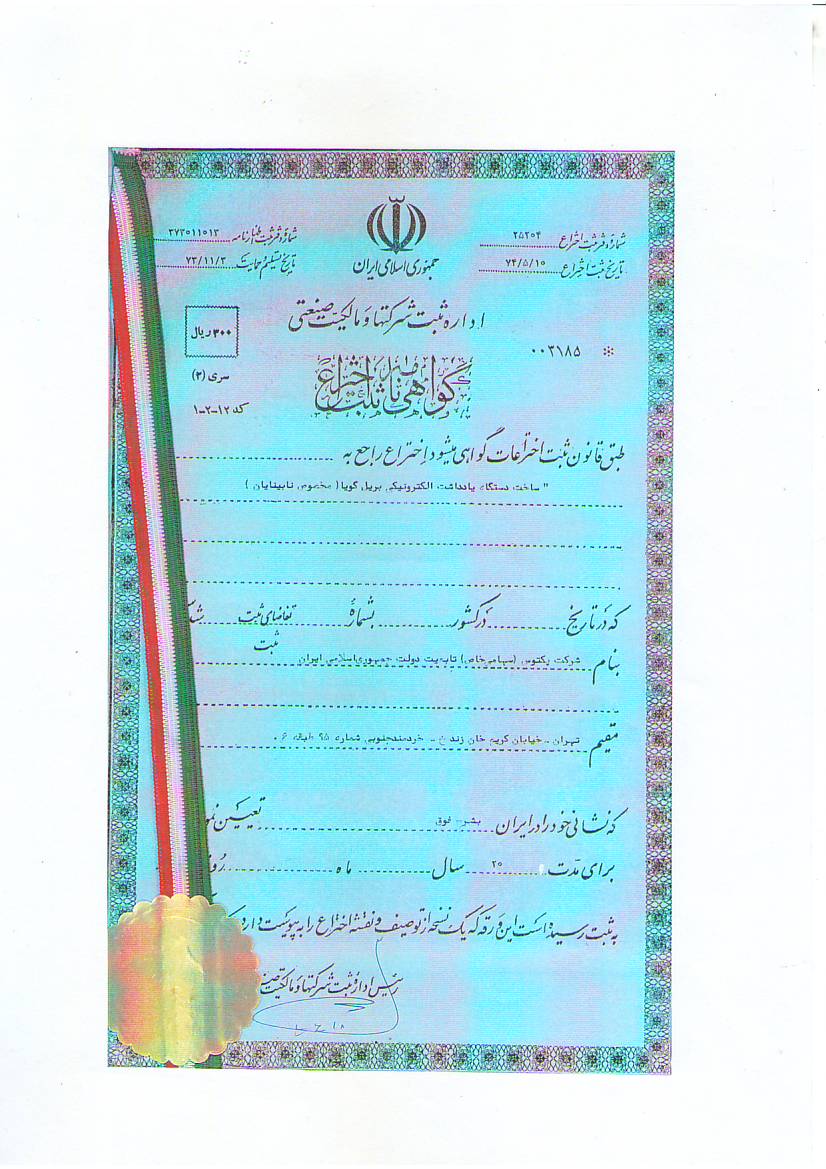 شماره دفتر ثبت اختراع ۲۵۲۰۴
تاریخ ثبت اختراع ۷۴/۵/۱۰
جمهوری اسلامی ایران
شماره دفتر ثبت اظهارنامه ۳۷۳۰۱۱۰۱۳
تاریخ تسلیم و حمایت ۷۳/۱۱/۳
اداره ثبت شرکتها و مالکیت صنعتی
۳۰۰ ریال
۰۰۳۱۸۵
سری (۲)
گواهی نامه ثبت اختراع
کد ۱۲-۲-۱
طبق قانون ثبت اختراعات گواهی میشود اختراع راجع به
" ساخت دستگاه یادداشت الکترونیکی بریل گویا ( مخصوص نابینایان )
که در تاریخ در کشور بشماره تقاضای ثبت
ثبت
بنام شرکت پکتوس (سهامی خاص) تابعیت دولت جمهوری اسلامی ایران
مقیم تهران - خیابان کریم خان زند خ - خردمند جنوبی شماره ۹۵ طبقه ۶ .
که نشانی خود را در ایران بشرح فوق تعیین
برای مدت ۲۰ سال ماه
به ثبت رسیده است این ورقه که یک نسخه از توصیف و نقشه اختراع را به پیوست دارد
رئیس اداره ثبت شرکتها و مالکیت